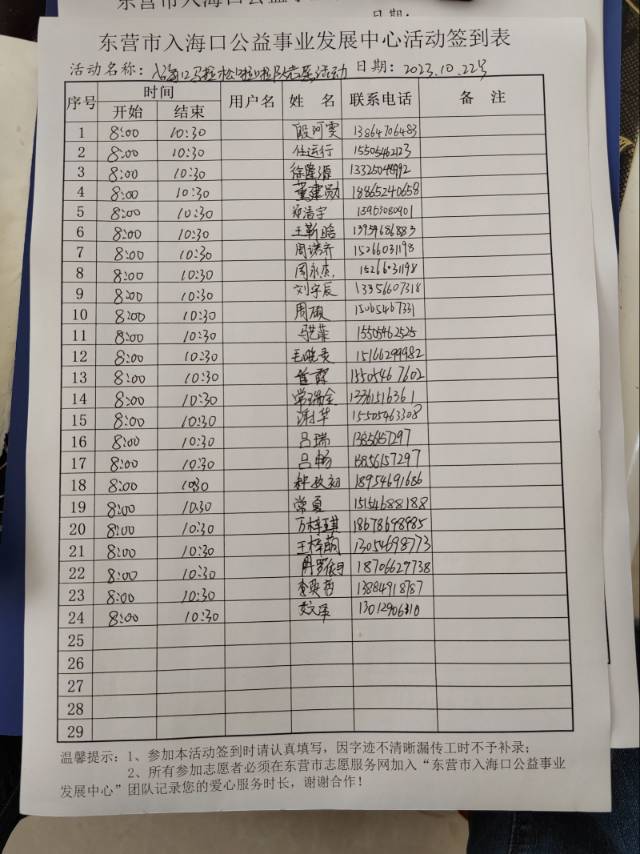 日期:
东营市入海口公益事业发展中心活动签到表
活动名称: 入海口马拉松啦啦队志愿活动 日期: 2023.10.22号
序号 时间 用户名 姓 名 联系电话 备 注
开始 结束
1 8:00 10:30 殷河雯 13864706483
2 8:00 10:30 任运行 15505462123
3 8:00 10:30 徐隆源
4 8:00 10:30 董建勋 18865240658
5 8:00 10:30
6 8:00 10:30 王靳晗
7 8:00 10:30 周诺齐 15266031198
8 8:00 10:30 周永 15266031198
9 8:00 10:30 刘宇辰 13356607318
10 8:00 10:30 周 15065467331
11 8:00 10:30 15505462525
12 8:00 10:30 毛晓 15166299982
13 8:00 10:30
14 8:00 10:30 常瑞金 13361516361
15 8:00 10:30 谢华 15505463308
16 8:00 10:30 吕瑞
17 8:00 10:30 吕畅
18 8:00 10:30 18954691666
19 8:00 10:30 常夏 15154688188
20 8:00 10:30 万梓琪 18678698985
21 8:00 10:30 王梓萌 13054698773
22 8:00 10:30 18706627738
23 8:00 10:30 13884918787
24 8:00 10:30 13012906310
25
26
27
28
29
温馨提示: 1、参加本活动签到时请认真填写,因字迹不清晰漏传工时不予补录;
2、所有参加志愿者必须在东营市志愿服务网加入“东营市入海口公益事业
发展中心”团队记录您的爱心服务时长,谢谢合作!